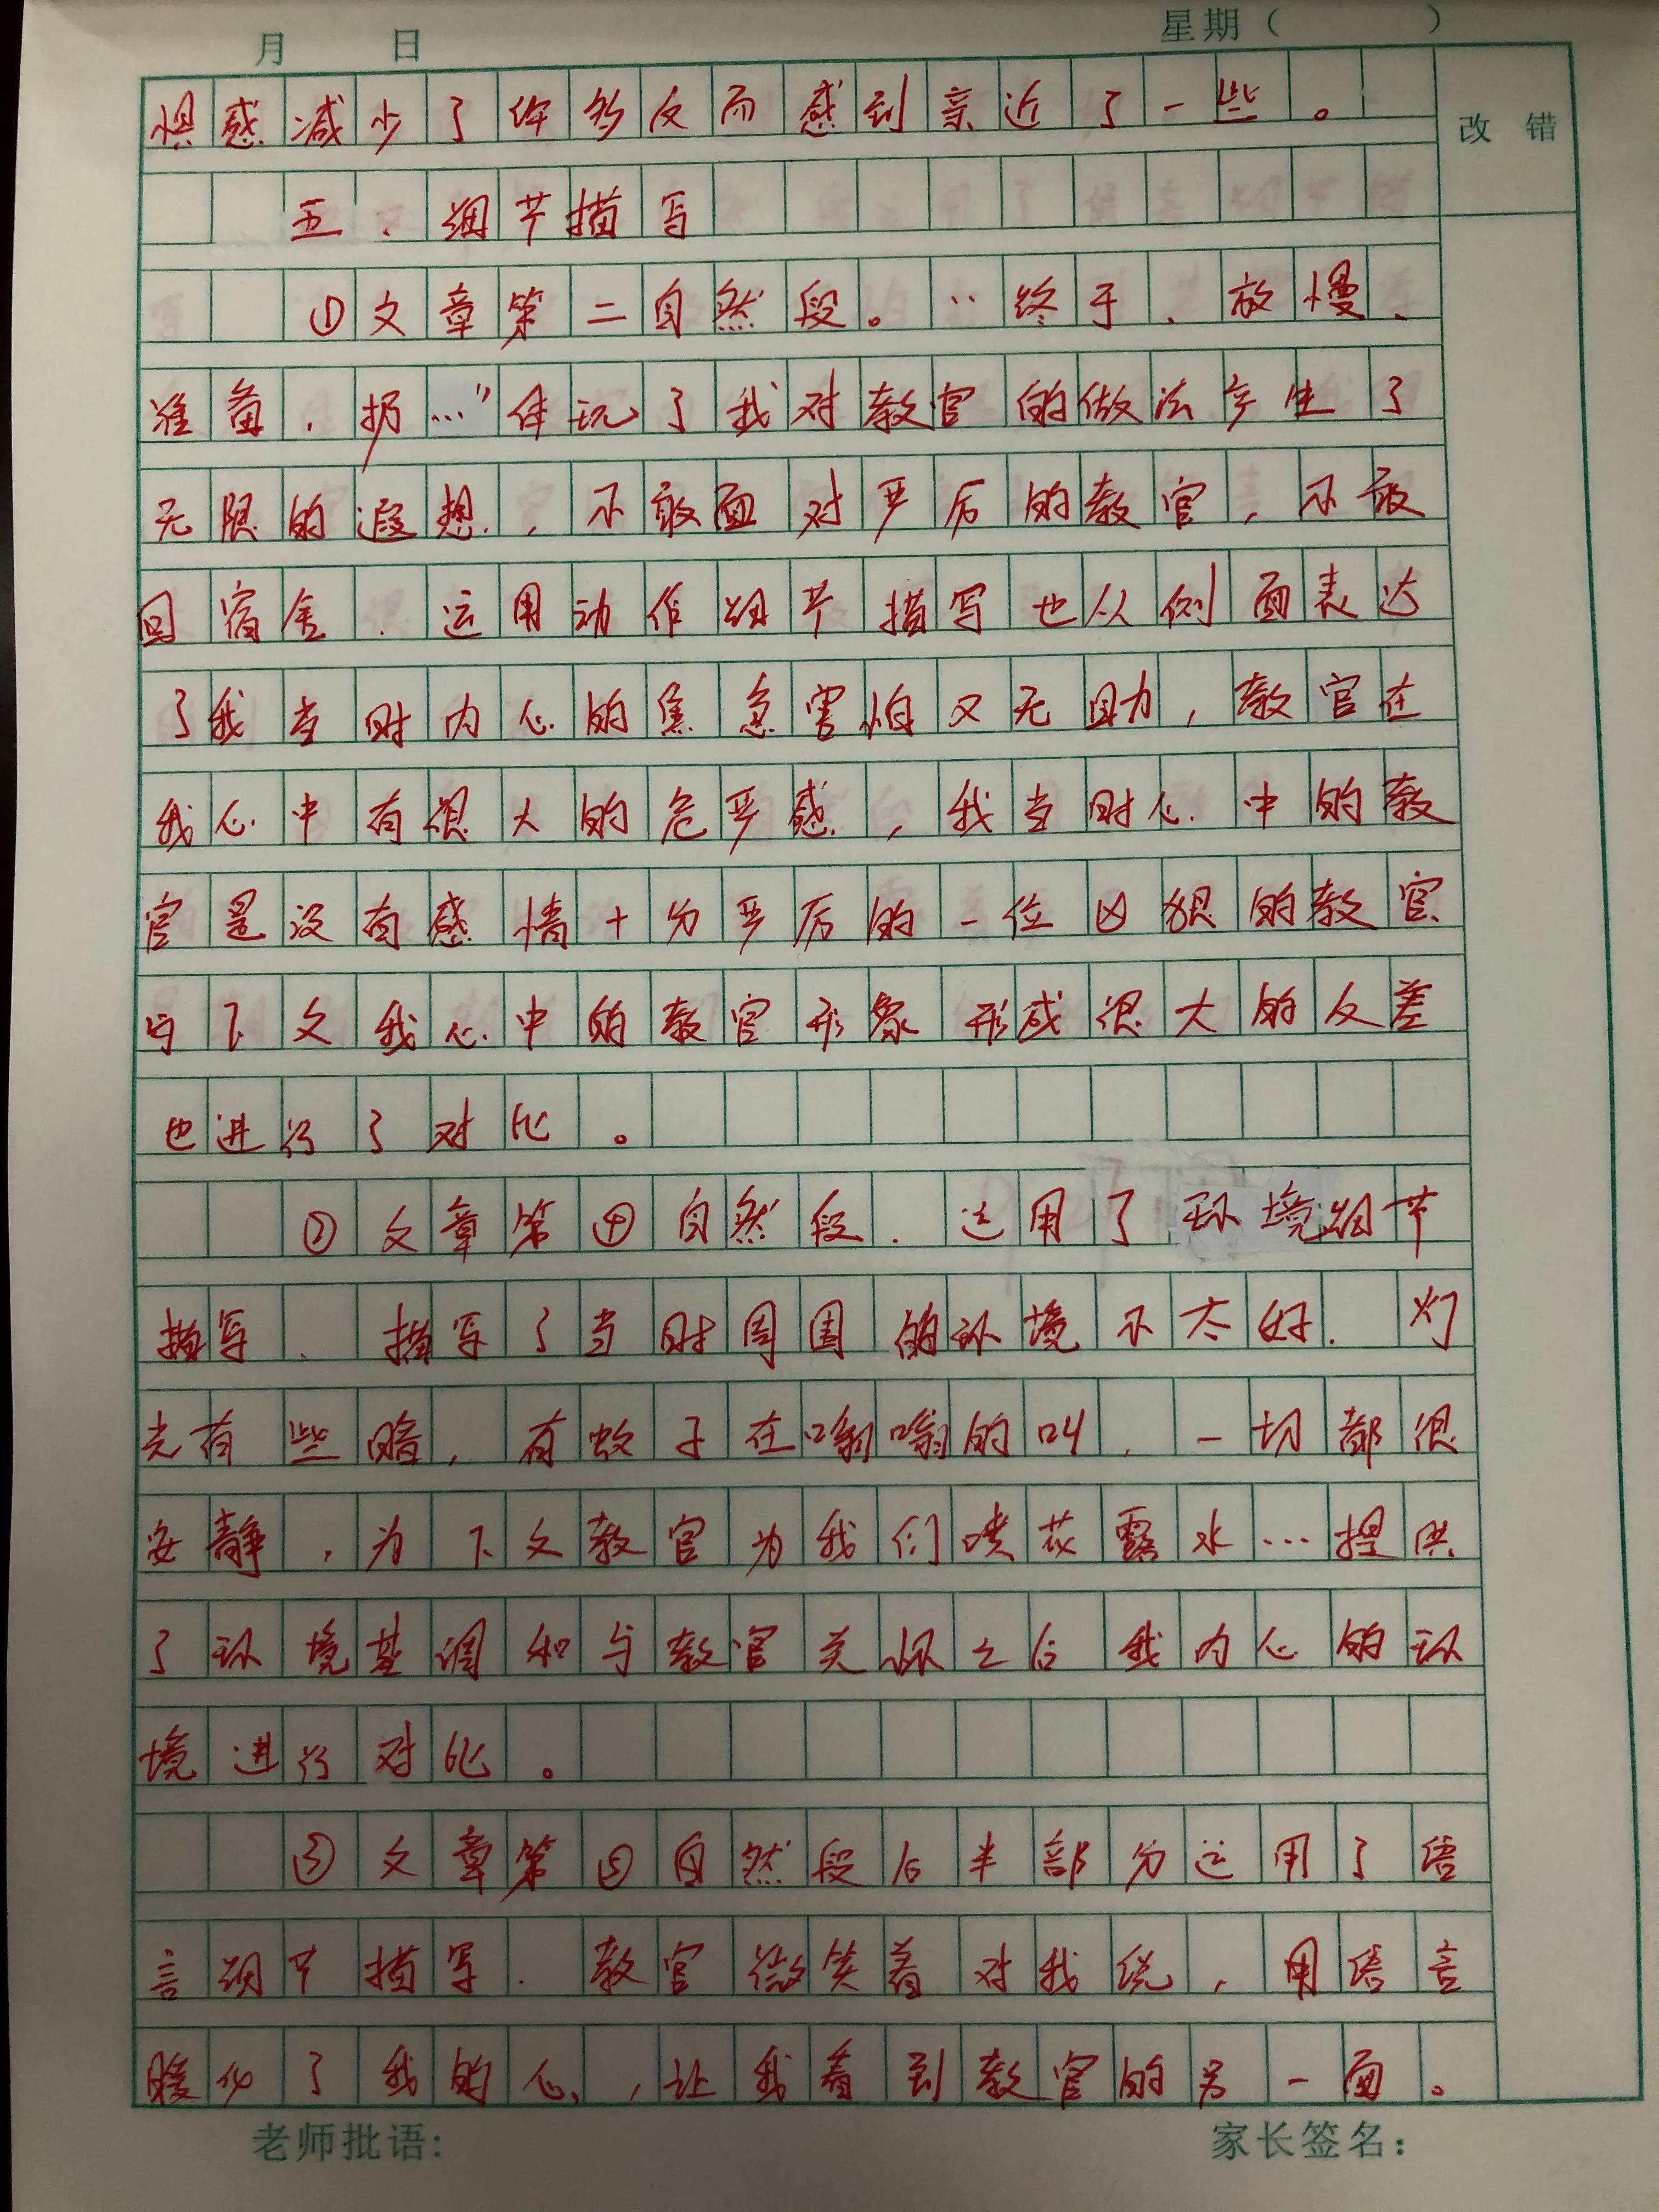 月 日 星期( )
改 错
惧感减少了许多反而感到亲近了一些。
五、细节描写
①文章第二自然段。“终于、放慢、
准备,扔…”体现了我对教官的做法产生了
无限的遐想,不敢面对严厉的教官,不敢
回宿舍.运用动作细节描写也从侧面表达
了我当时内心的焦急害怕又无助,教官在
我心中有很大的危严感,我当时心中的教
官是没有感情十分严厉的一位凶狠的教官
与下文我心中的教官形象形成很大的反差
也进行了对比。
②文章第四自然段.运用了环境细节
描写.描写了当时周围的环境不太好.灯
光有些暗,有蚊子在嗡嗡的叫,一切都很
安静,为下文教官为我们喷花露水…提供
了环境基调和与教官关怀之后我内心的环
境进行对比。
③文章第四自然段后半部分运用了语
言细节描写.教官微笑着对我说,用语言
暖化了我的心,让我看到教官的另一面。
老师批语: 家长签名: